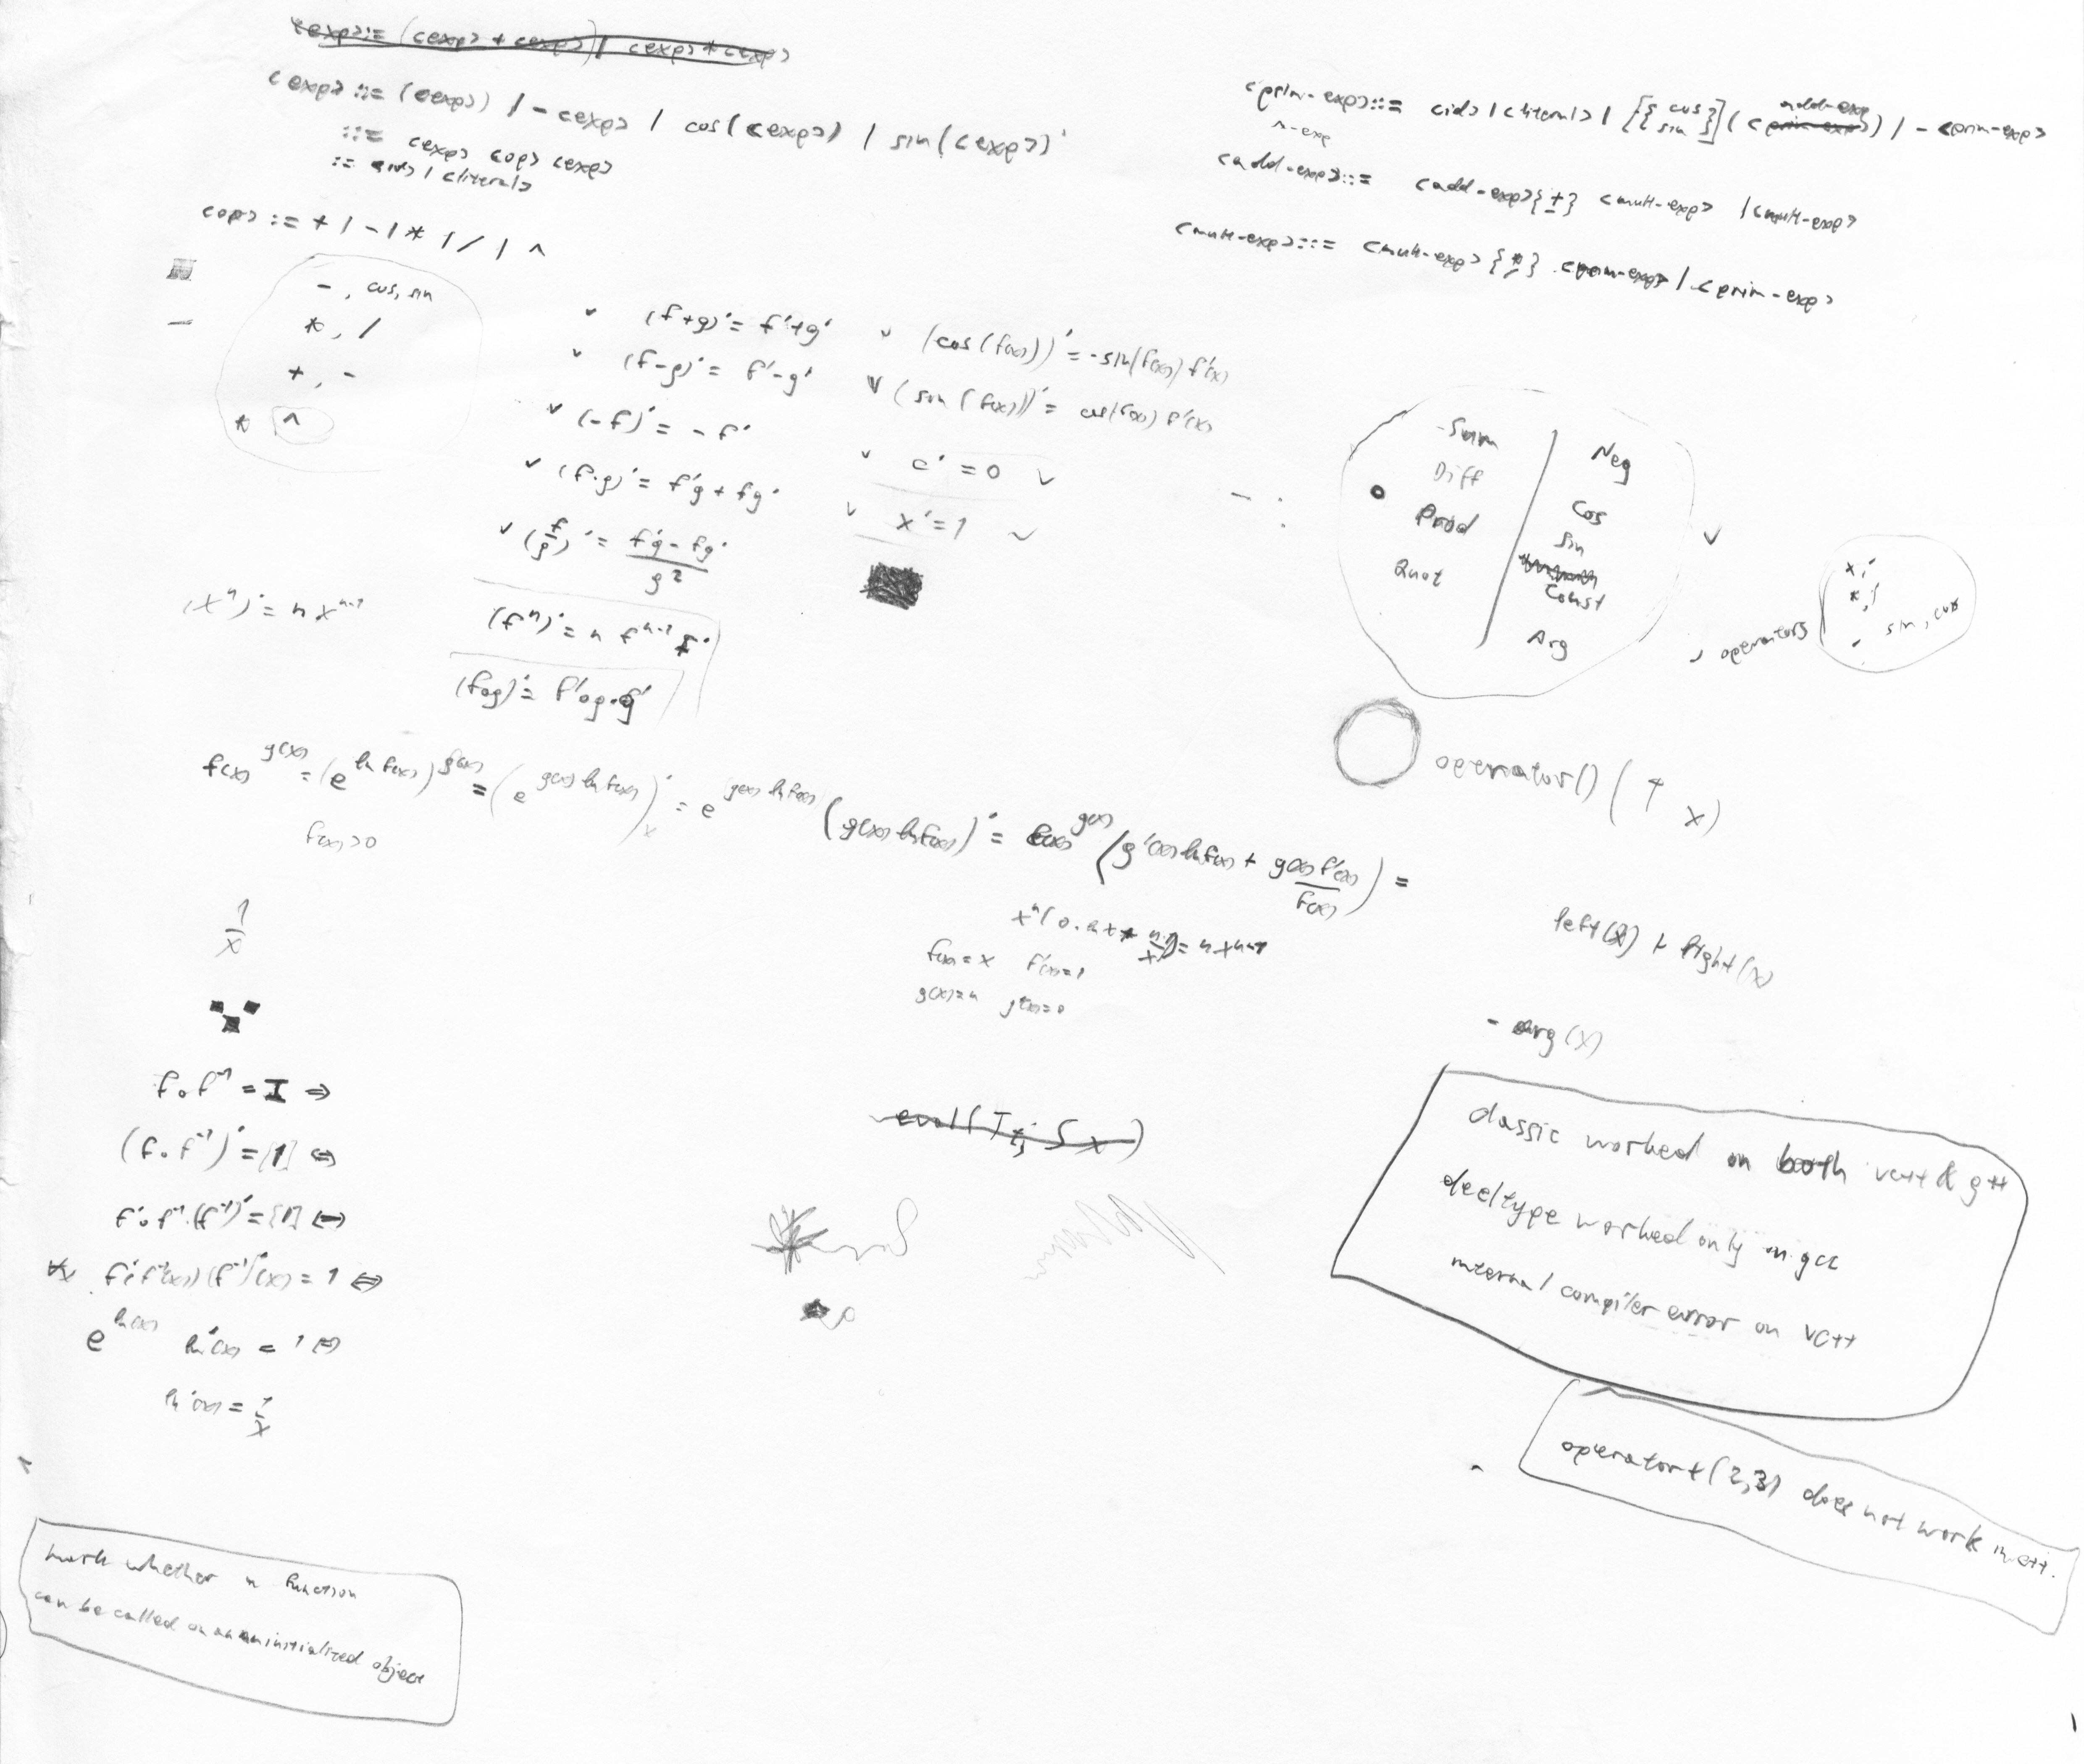 <exp> ::= (<exp> + <exp>) | <exp> * <exp>
<exp> ::= (<exp>) | - <exp> | cos(<exp>) | sin(<exp>)
::= <exp> <op> <exp>
::= <id> | <literal>
<op> ::= + | - | * | / | ^
-, cos, sin
*, /
+, -
* ^
<prim-exp> ::= <id> | <literal> | [{cos sin}] (<add-exp>) | - <prim-exp>
^-exp
<add-exp> ::= <add-exp> {±} <mult-exp> | <mult-exp>
<mult-exp> ::= <mult-exp> {* /} <prim-exp> | <prim-exp>
✓ (f+g)' = f'+g'
✓ (f-g)' = f'-g'
✓ (-f)' = -f'
✓ (f·g)' = f'g + fg'
✓ (f/g)' = (f'g - fg')/g²
(xⁿ)' = n xⁿ⁻¹
(fⁿ)' = n fⁿ⁻¹ f'
(f∘g)' = f'∘g·g'
✓ (cos(f(x)))' = -sin(f(x)) f'(x)
✓ (sin(f(x)))' = cos(f(x)) f'(x)
✓ c' = 0 ✓
✓ x' = 1 ✓
Sum
Diff
Prod
Quot
Neg
Cos
Sin
Const
Arg
✓
operators
sin, cos
operator()(T x)
f(x)^g(x) = (e^ln f(x))^g(x) = (e^g(x) ln f(x))'x = e^g(x) ln f(x) (g(x) ln f(x))' = f(x)^g(x) (g'(x) ln f(x) + g(x) f'(x)/f(x)) =
f(x)>0
xⁿ(0·ln x + n·1/x) = n xⁿ⁻¹
f(x) = x f'(x) = 1
g(x) = n g'(x) = 0
1/x
left(x) + right(x)
- arg(x)
f∘f⁻¹ = I ⇒
(f∘f⁻¹)' = [1] ⇔
f'∘f⁻¹·(f⁻¹)' = [1] ⇔
∀x f'(f⁻¹(x)) (f⁻¹)'(x) = 1 ⇔
e^ln(x) ln'(x) = 1 ⇔
ln'(x) = 1/x
classic worked on both vc++ & g++
decltype worked only on gcc
internal compiler error on VC++
operator+(2,3) does not work in c++.
mark whether a function
can be called on an uninitialized object